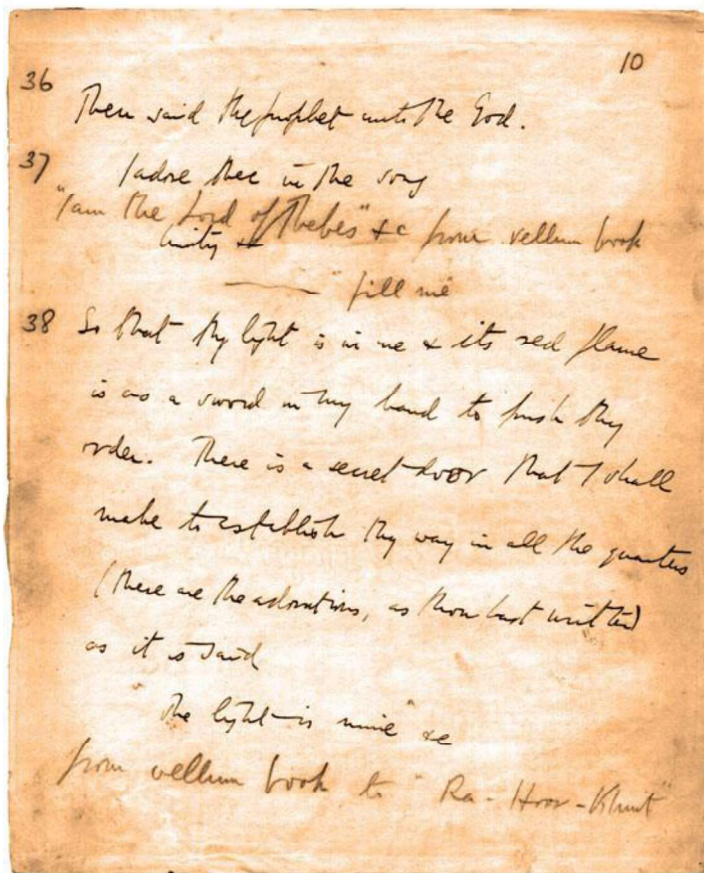 10
36
Then said the prophet unto the God.
37 I adore thee in the song
"I am the Lord of Thebes" &c from vellum book
Unity &c
——— "fill me"
38 So that thy light is in me & its red flame
is as a sword in my hand to push thy
order. There is a secret door that I shall
make to establish thy way in all the quarters
(these are the adorations, as thou hast written)
as it is said
The light is mine" &c
from vellum book to "Ra-Hoor-Khuit"